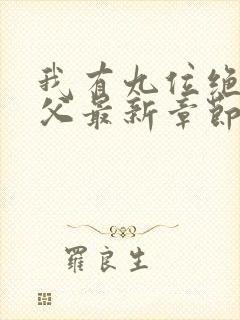 我有九位绝
父最新章節
羅良生